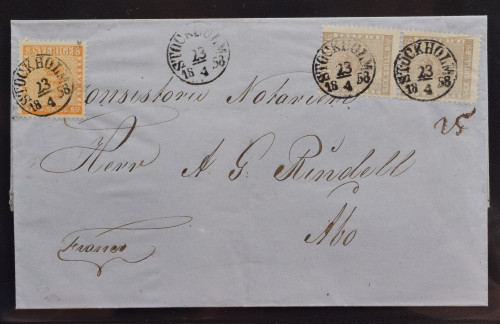 8 SVERIGE 8
STOCKHOLM
23
18 4 58
STOCKHOLM
23
18 4 58
STOCKHOLM
23
18 4 58
STOCKHOLM
23
18 4 58
Consistorii Notarien
Herr A. G. Rindell
Åbo
Franco